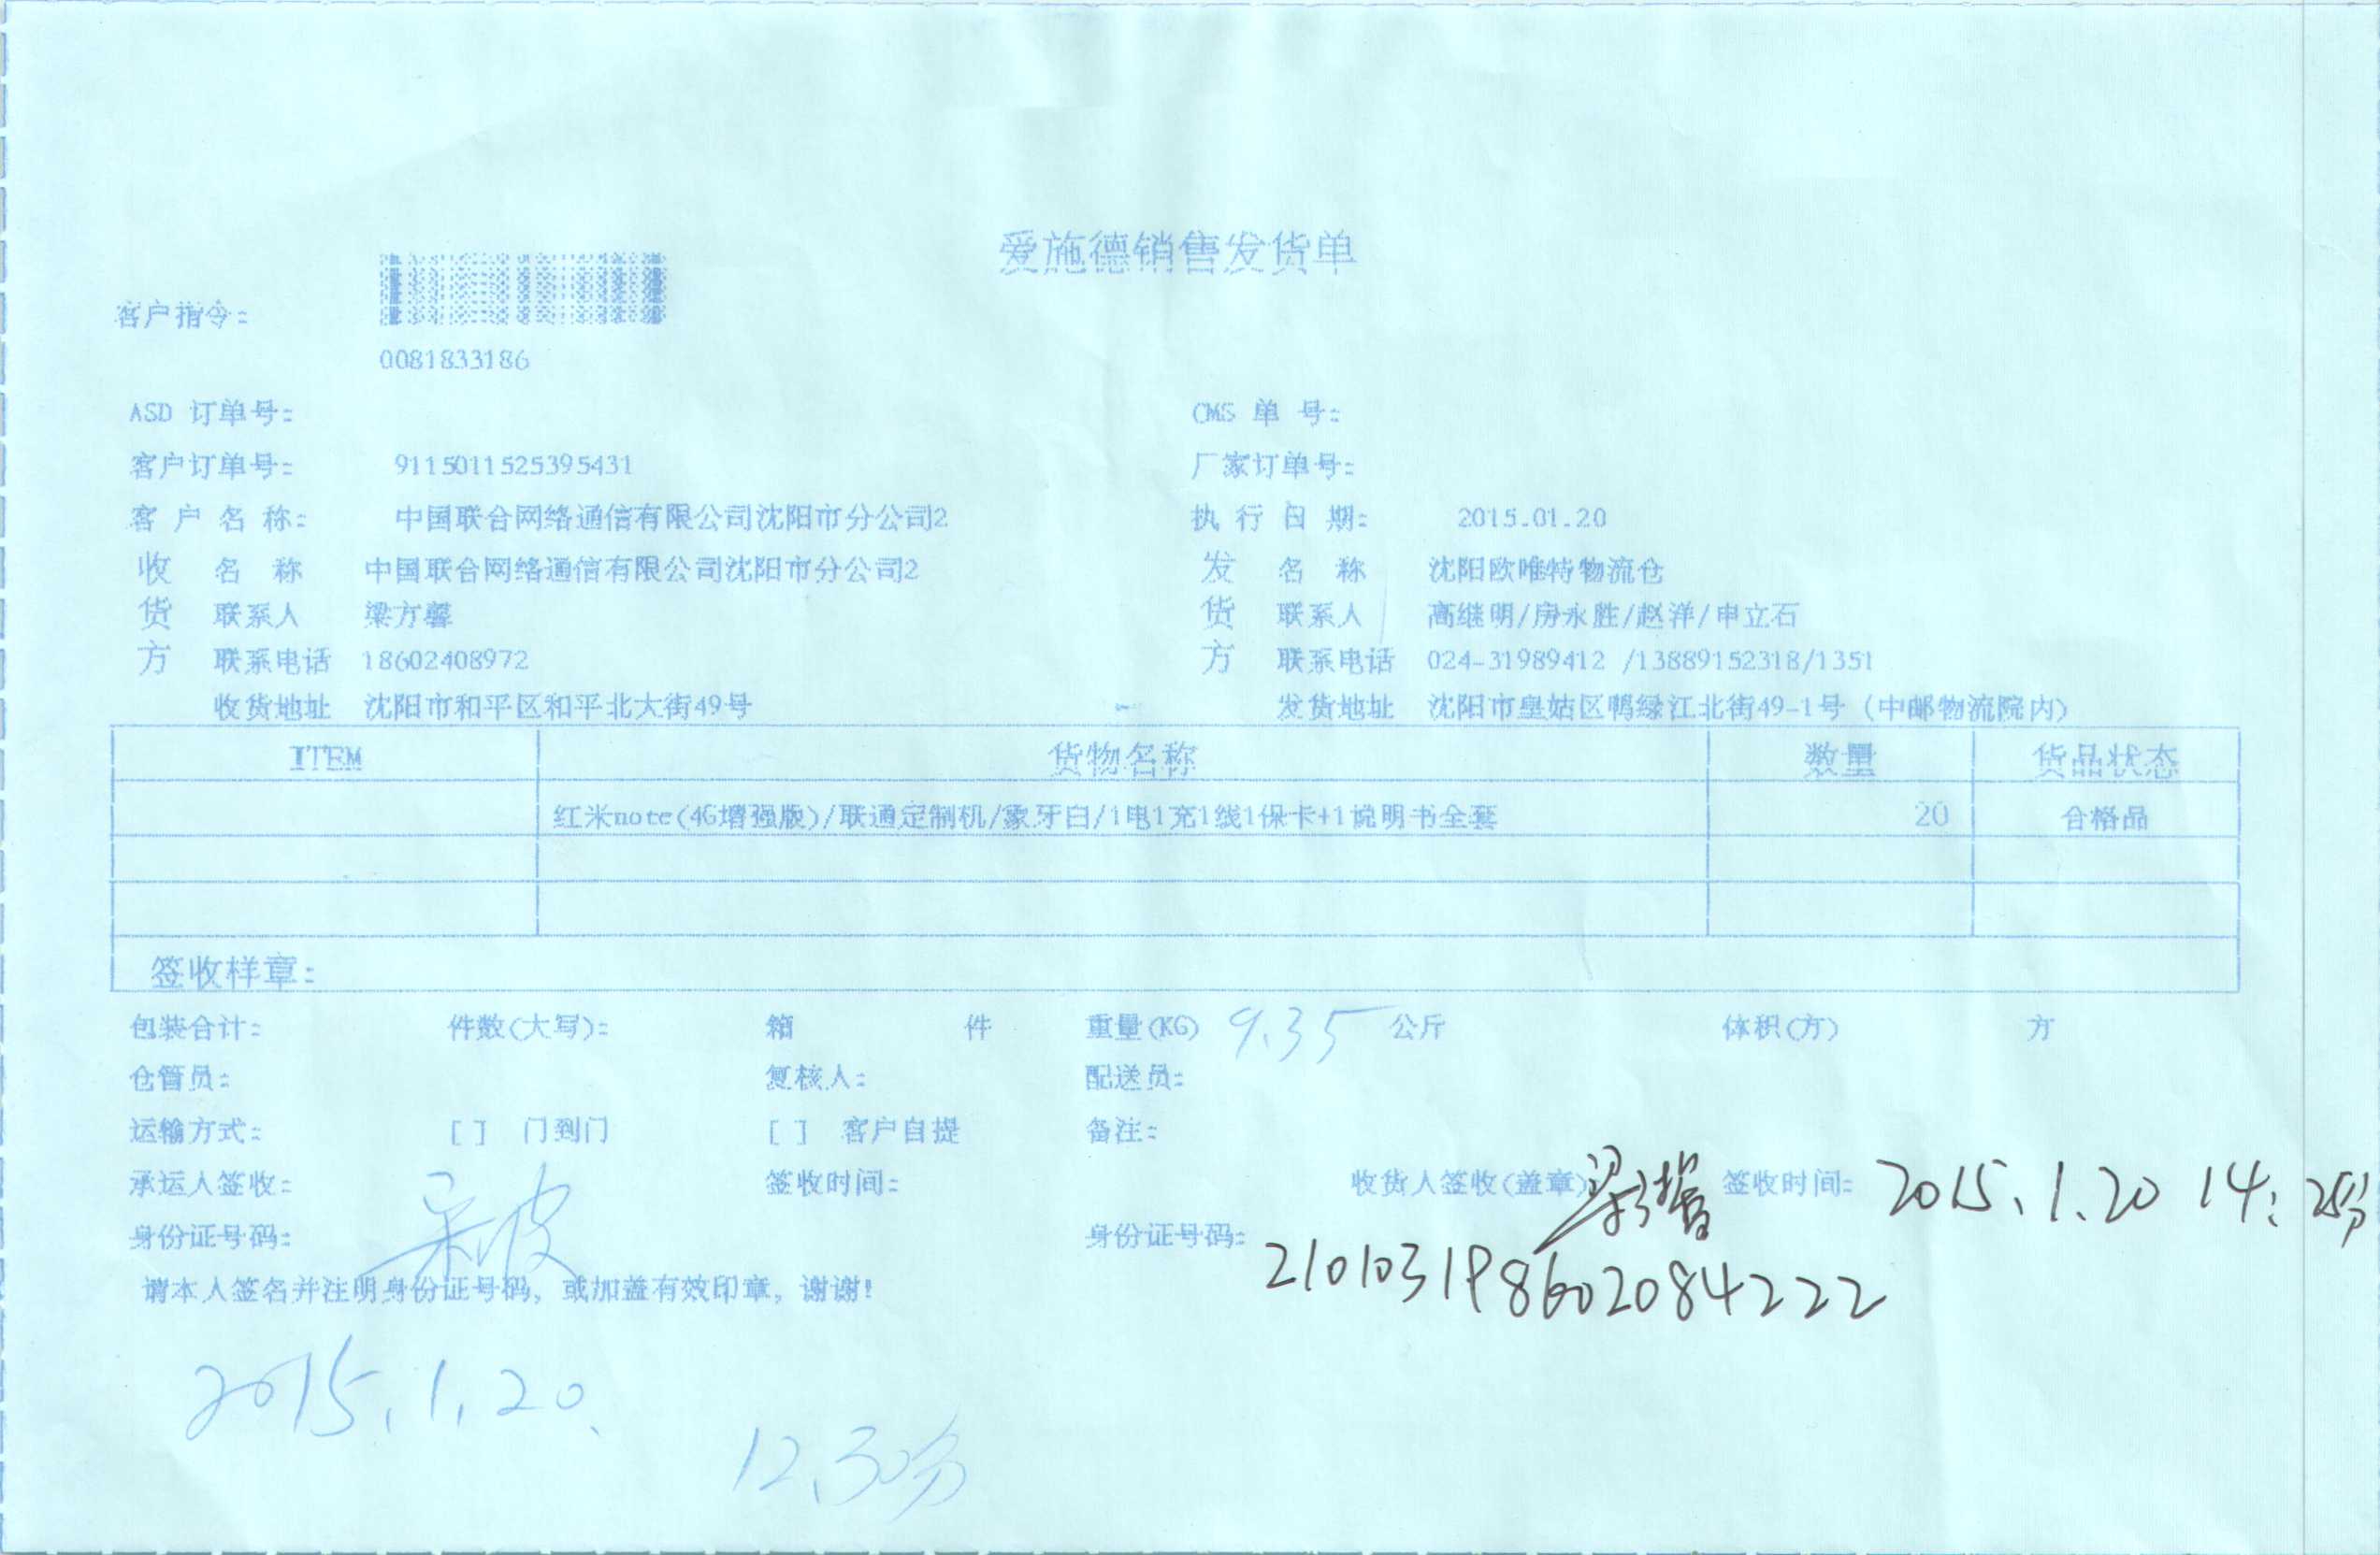 爱施德销售发货单
客户指令:
0081833186
ASD 订单号: CMS 单 号:
客户订单号: 9115011525395431 厂家订单号:
客 户 名 称: 中国联合网络通信有限公司沈阳市分公司2 执 行 日 期: 2015.01.20
收 名 称 中国联合网络通信有限公司沈阳市分公司2 发 名 称 沈阳欧唯特物流仓
货 联系人 梁方馨 货 联系人 高继明/房永胜/赵洋/申立石
方 联系电话 18602408972 方 联系电话 024-31989412 /13889152318/1351
收货地址 沈阳市和平区和平北大街49号 发货地址 沈阳市皇姑区鸭绿江北街49-1号 (中邮物流院内)
ITEM 货物名称 数量 货品状态
红米note(4G增强版)/联通定制机/象牙白/1电1充1线1保卡+1说明书全套 20 合格品
签收样章:
包装合计: 件数(大写): 箱 件 重量(KG) 9.35 公斤 体积(方) 方
仓管员: 复核人: 配送员:
运输方式: [ ] 门到门 [ ] 客户自提 备注:
承运人签收: 签收时间: 收货人签收(盖章) 签收时间: 2015.1.20 14:25分
身份证号码: 身份证号码: 210103198602084222
请本人签名并注明身份证号码, 或加盖有效印章, 谢谢!
2015.1.20.
12.30分